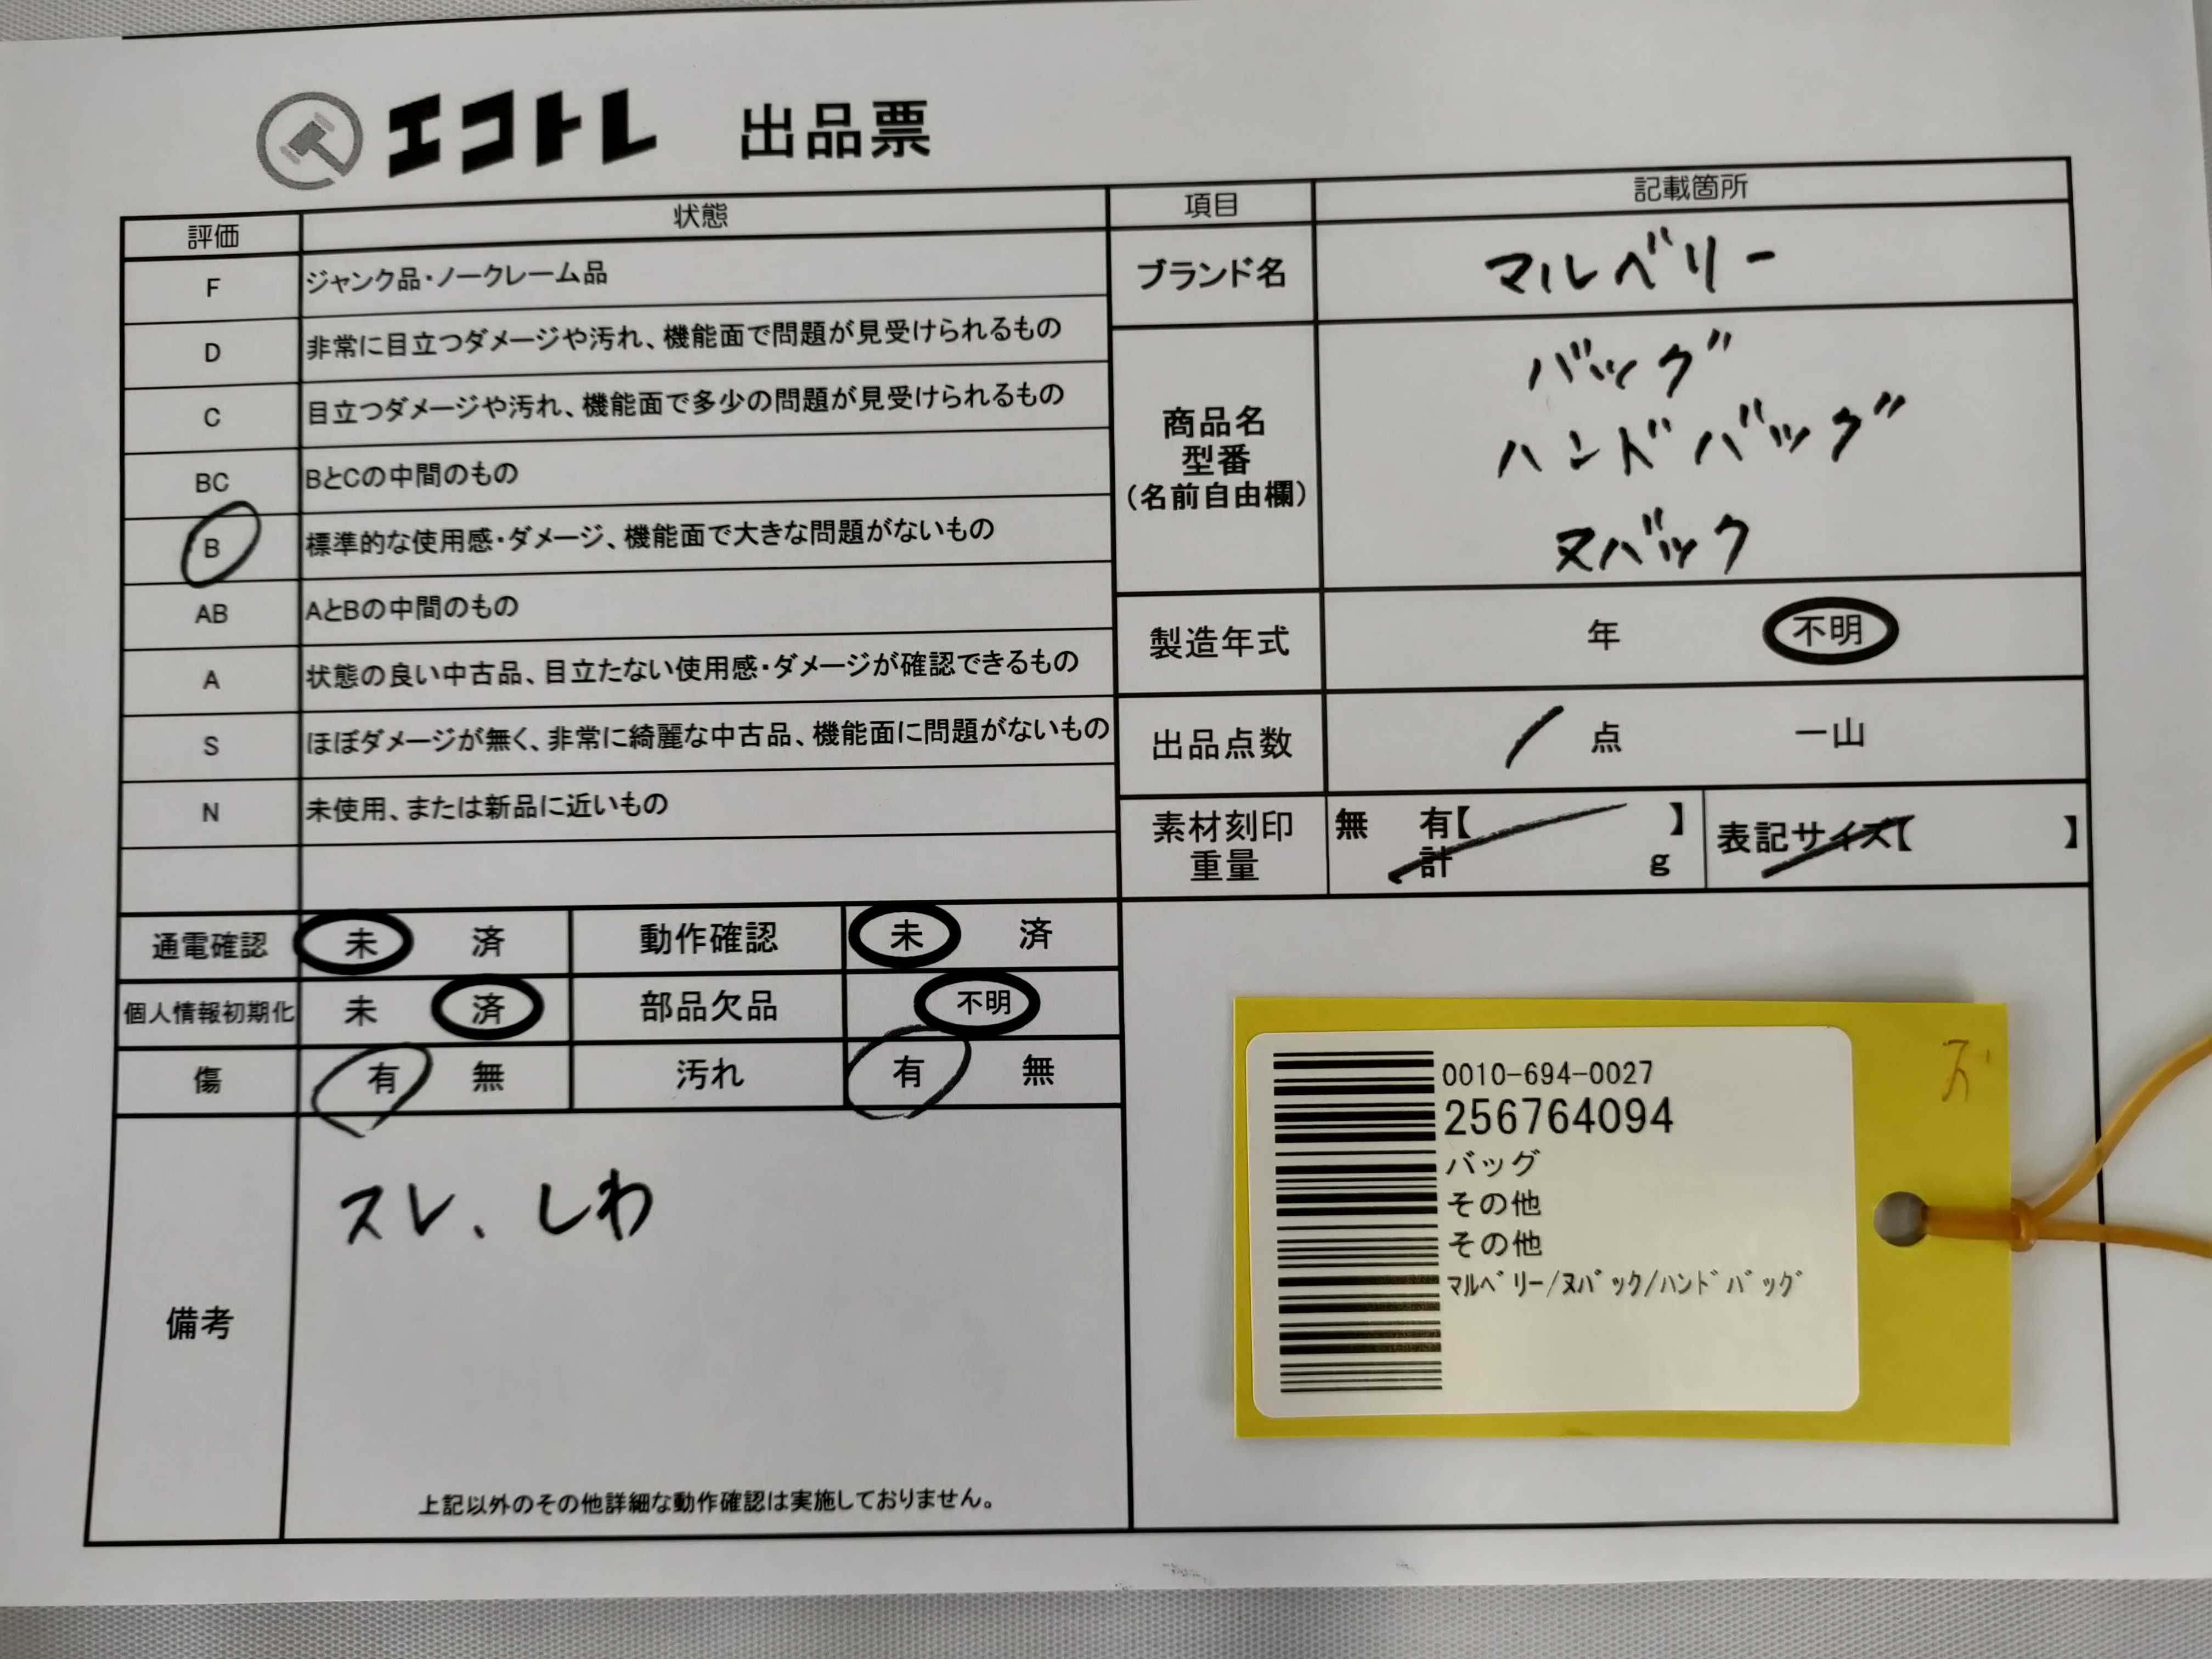 エコトレ 出品票
評価 状態
F ジャンク品・ノークレーム品
D 非常に目立つダメージや汚れ、機能面で問題が見受けられるもの
C 目立つダメージや汚れ、機能面で多少の問題が見受けられるもの
BC BとCの中間のもの
B 標準的な使用感・ダメージ、機能面で大きな問題がないもの
AB AとBの中間のもの
A 状態の良い中古品、目立たない使用感・ダメージが確認できるもの
S ほぼダメージが無く、非常に綺麗な中古品、機能面に問題がないもの
N 未使用、または新品に近いもの
通電確認 未 済 動作確認 未 済
個人情報初期化 未 済 部品欠品 不明
傷 有 無 汚れ 有 無
備考
スレ、しわ
上記以外のその他詳細な動作確認は実施しておりません。
項目 記載箇所
ブランド名 マルベリー
商品名
型番
(名前自由欄)
バッグ
ハンドバッグ
ヌバック
製造年式 年 不明
出品点数 1 点 一山
素材刻印 無 有【 】 表記サイズ【 】
重量 計 g
0010-694-0027
256764094
バッグ
その他
その他
ﾏﾙﾍﾞﾘｰ/ﾇﾊﾞｯｸ/ﾊﾝﾄﾞﾊﾞｯｸﾞ